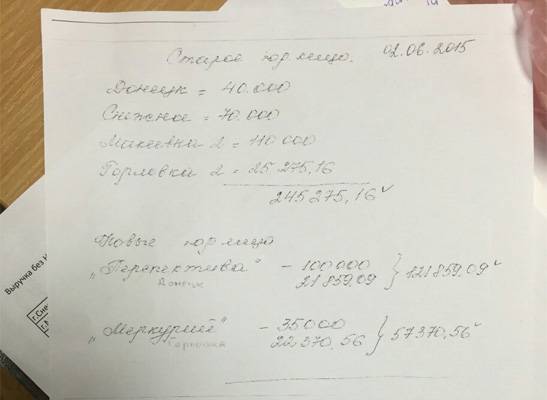 Старое юр. лицо. 02.06.2015
Донецк = 40.000
Снежное = 70.000
Макеевка 2 = 110 000
Горловка 2 = 25 275,16
245 275,16
Новые юр лица
„Перспектива“ – 100 000
Донецк 21859,09 } 121 859.09
„Меркурий“ – 35000
Горловка 22 370,56 } 57 370,56
Выручка без
г.Сне